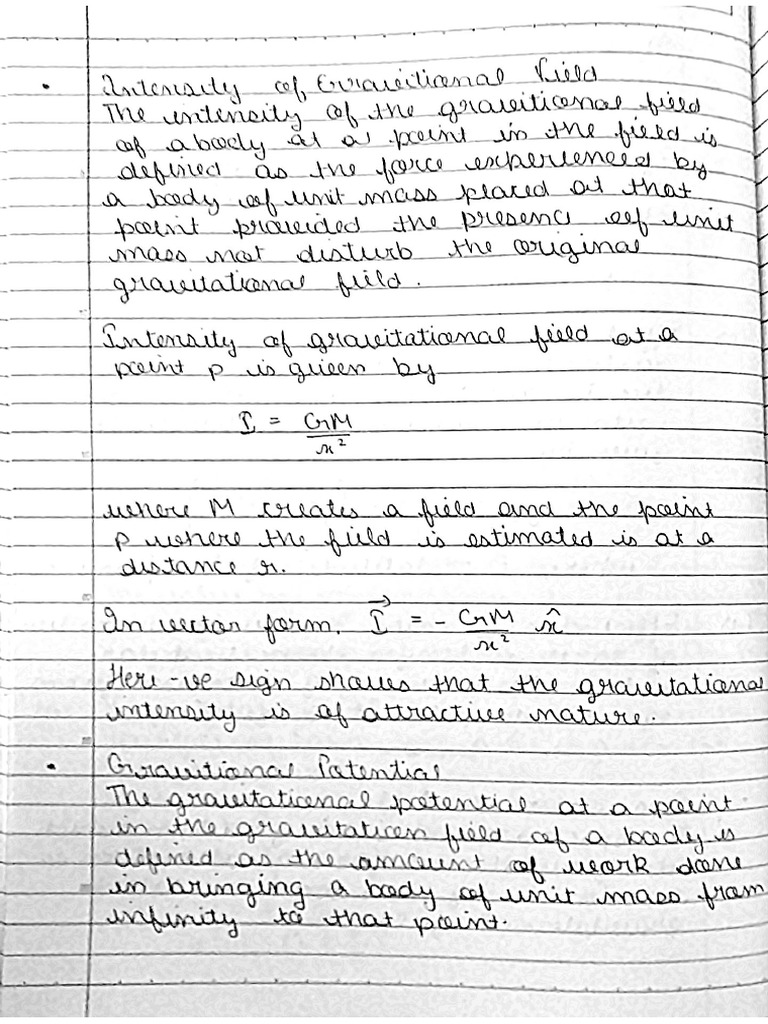 • Intensity of Gravitional Field
The intensity of the graviticonal field
of a body at a point in the field is
defined as the force experienced by
a body of unit mass placed at that
point provided the presence of unit
mass not disturb the original
gravitational field.
Intensity of gravitational field at a
point p is given by
I = GM/r²
where M creates a field and the point
P where the field is estimated is at a
distance r.
In vector form, I⃗ = - GM/r² r̂
Here -ve sign shows that the gravitational
intensity is of attractive nature.
• Gravitional Potential
The gravitational potential at a point
in the gravitation field of a body is
defined as the amount of work done
in bringing a body of unit mass from
infinity to that point.